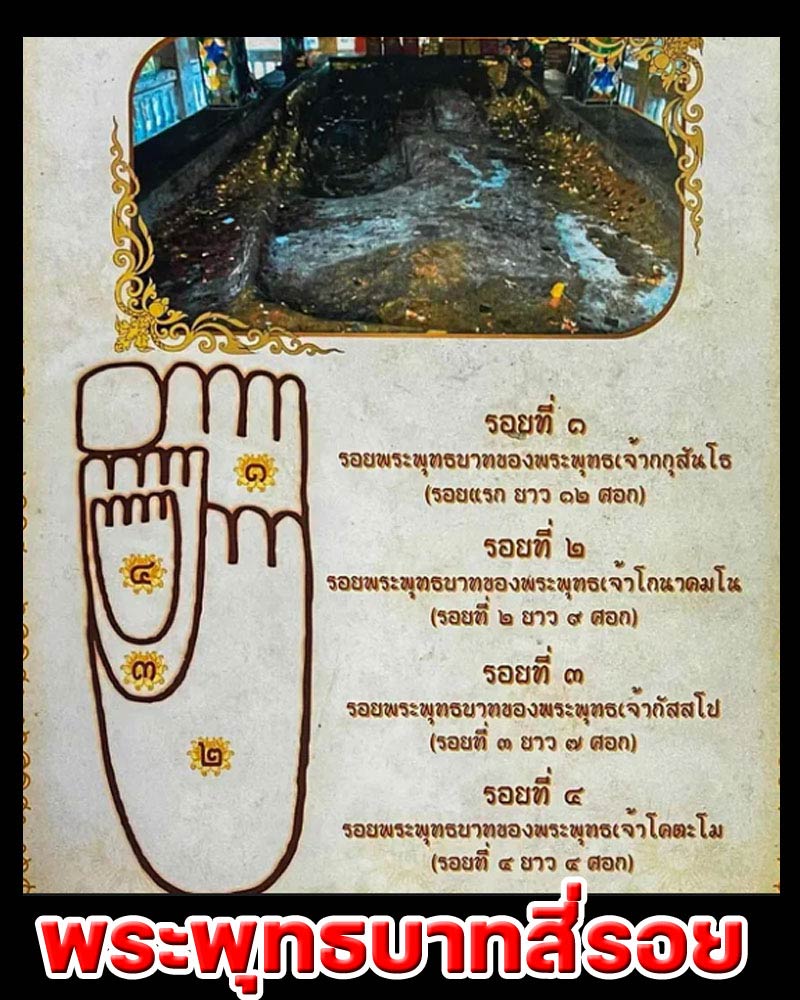 รอยที่ ๑
รอยพระพุทธบาทของพระพุทธเจ้ากกุสันโธ
(รอยแรก ยาว ๑๒ ศอก)
๑
รอยที่ ๒
รอยพระพุทธบาทของพระพุทธเจ้าโกนาคมโน
(รอยที่ ๒ ยาว ๙ ศอก)
๔
รอยที่ ๓
รอยพระพุทธบาทของพระพุทธเจ้ากัสสโป
(รอยที่ ๓ ยาว ๗ ศอก)
๓
๒
รอยที่ ๔
รอยพระพุทธบาทของพระพุทธเจ้าโคตะโม
(รอยที่ ๔ ยาว ๔ ศอก)
พระพุทธบาทสี่รอย